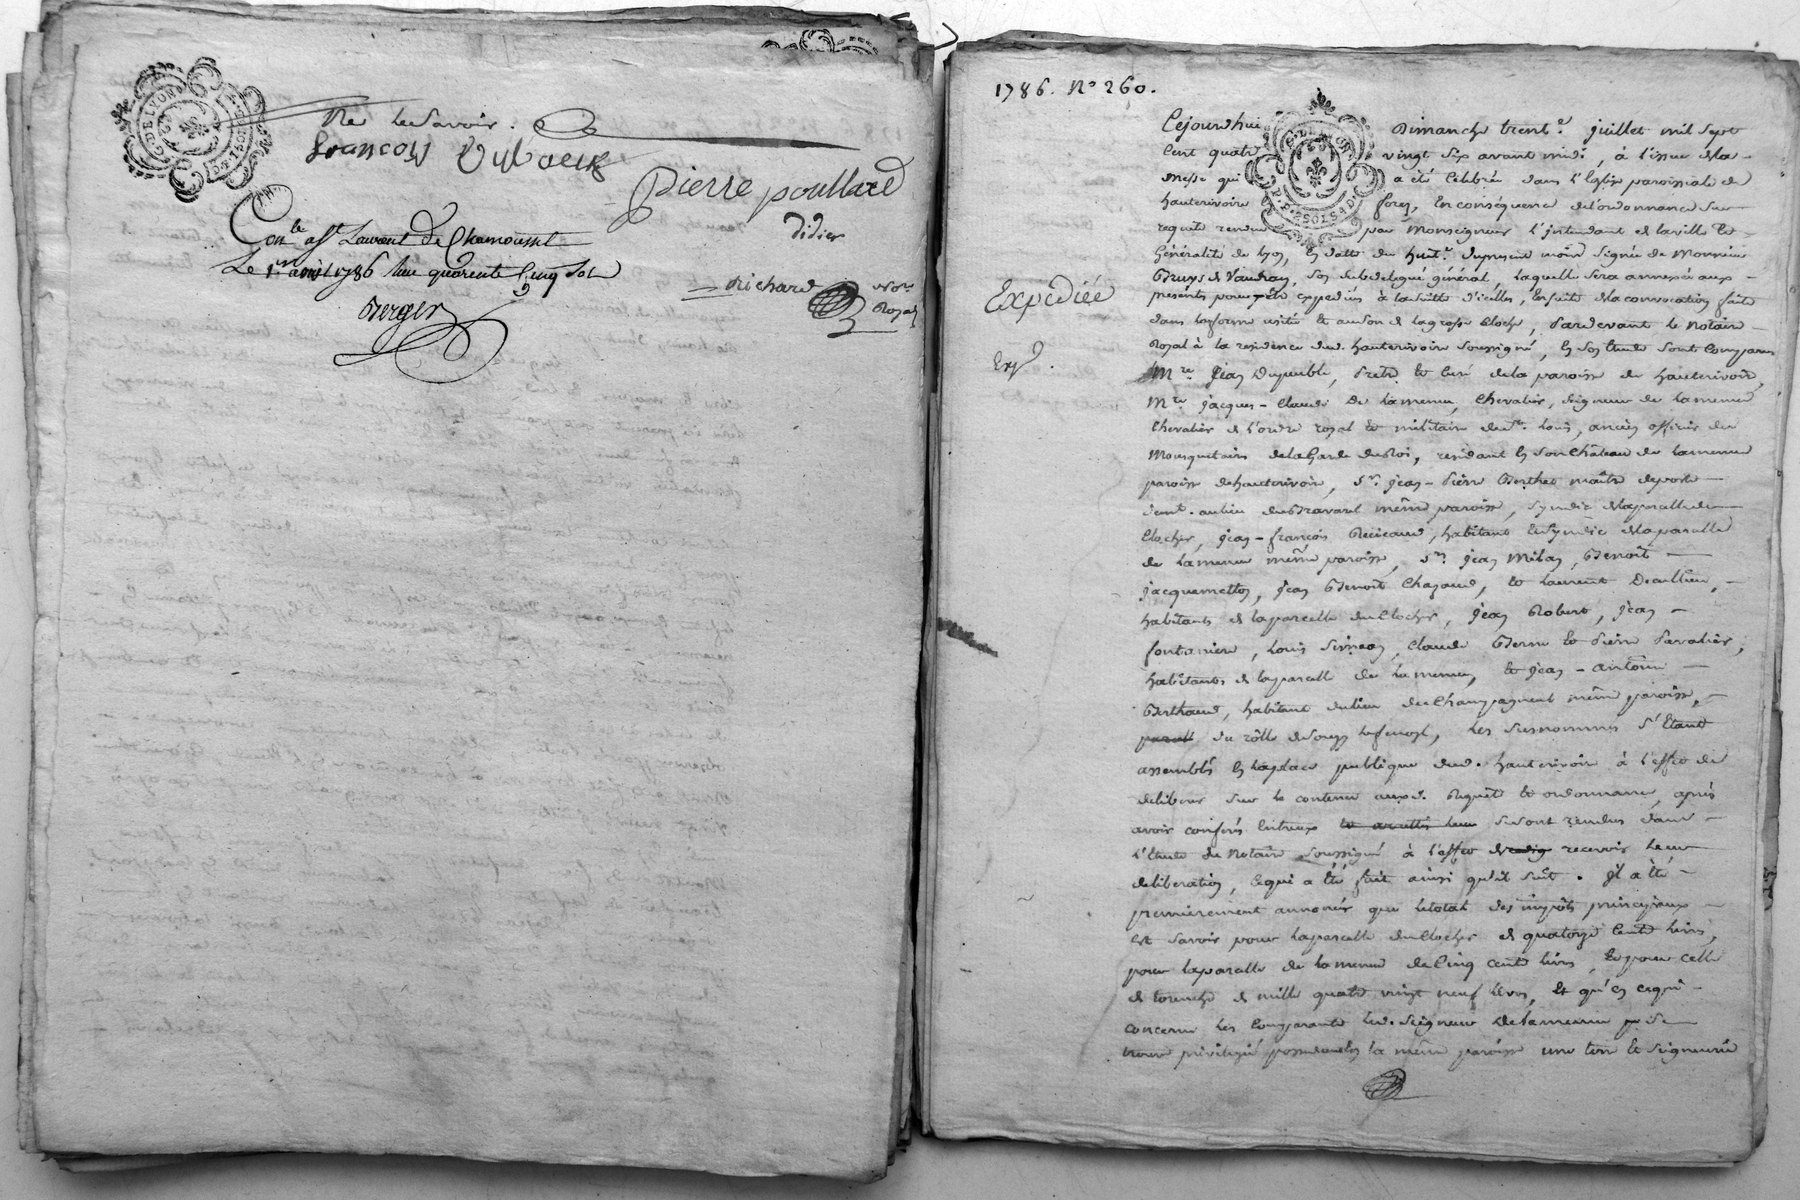 G. DE LYON
ne le savoir.
françois
Pierre poullard
didier
Con.le a St Laurent de Chamousset
Le 1er avril 1786 Reçu quarente Cinq Sol
richard no.re
Royal
Berger
1786. N° 260.
Cejourdhui Dimanche trente juillet mil sept
Cent quatre vingt six avant midi, à l'issue de la
messe qui a été Célébrée dans l'Eglise paroissiale de
hauterivoire forez, En conséquence de l'ordonnance sur
requete rendue par Monseigneur l'jntendant de la ville et
Généralité de lyon, En datte du huit du present mois signée de Monsieur
Bruys de Vaudran, son subdelegué général, laquelle sera annexée aux
presents pour être expediés à la suitte d'icelles, Ensuite de la convocation faite
Expediée
dans la forme usitée et au son de la grosse cloche, Pardevant le notaire
Royal à la residence dud. hauterivoire soussigné, En son Etude sont Comparus
Exp.
M.re Jean Dupeuble, Pretre et Curé de la paroisse de hauterivoire,
M.re jacques-Claude De Lamenue, Chevalier, Seigneur de Lamenue
Chevalier de l'ordre royal et militaire de St. Louis, ancien officier des
Mousquetaires de la Garde du Roi, residant En son Château de Lamenue
paroisse de hauterivoire, Sr. jean-Pierre Berthet maître de poste
dem.t au lieu du Bravard même paroisse, syndic de la parcelle du
Clocher, jean-françois habitant Et syndic de la parcelle
de Lamenue même paroisse, Srs. jean Milan, Benoît
jacquemetton, jean Benoît Chazaud, et Laurent
habitants de la parcelle du Clocher, jean Robert, jean
fontaniere, Louis Claude et Pierre
habitants de la parcelle de Lamenue, et jean-Antoine
Berthaud, habitant du lieu de Champagneux même paroisse,
du rôlle de Les susnommés s'Etant
assemblés En la place publique dud. hauterivoire à l'effet de
deliberer sur le contenu auxd. Requête et ordonnance, après
avoir conferés Entreux se sont rendus dans
l'Etude du Notaire soussigné à l'effet de recevoir Leur
deliberation, Ce qui a Eté fait ainsi qu'il suit. Il a Eté
premierement annoncé que le total des impôts principaux
Est savoir pour la parcelle du Clocher de quatorze Cents livres,
pour la parcelle de Lamenue de Cinq cents livres, Et pour celle
de de mille quatre vingt neuf livres, Et qu'En ce qui
concerne les Comparants led. Seigneur De Lamenue se
trouve privilegié possedant En la même paroisse une terre Et Seigneurie